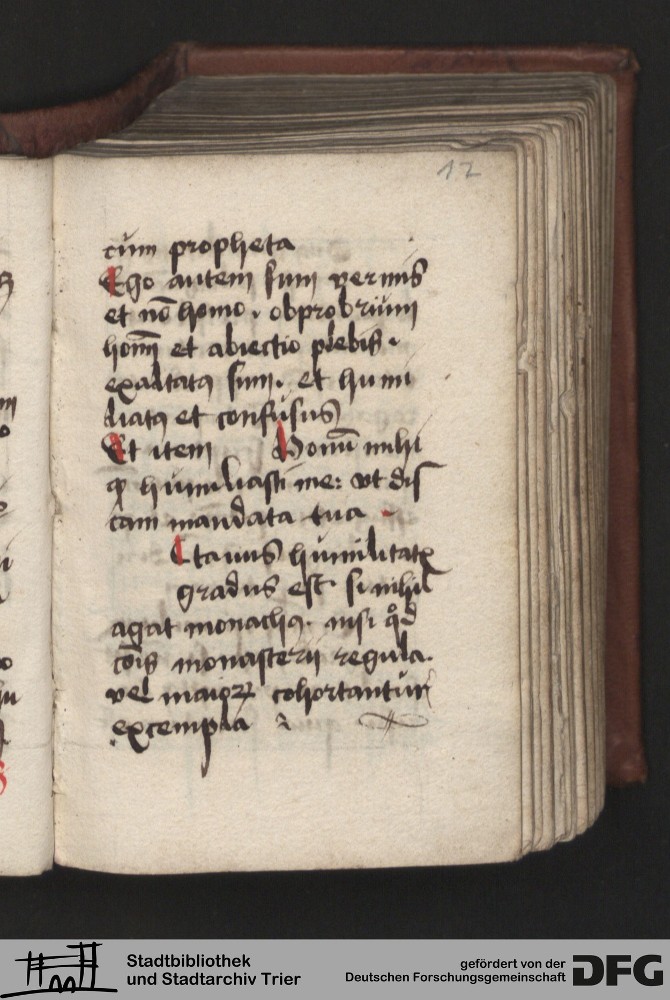 12
cum propheta
Ego autem sum vermis
et nō homo . obprobrium
homī et abiectio plebis .
exaltatꝰ sum . et humi
liatꝰ et confusus
Et item Bonū mihi
ꝙ humiliasti me : vt dis
cam mandata tua .
Ctauus humilitatꝭ
gradus est si nihil
agat monachꝰ . nisi qͦd
cōis monasterii regula .
vel maioꝝ cohortantur
excempla
Stadtbibliothek
und Stadtarchiv Trier
gefördert von der
Deutschen Forschungsgemeinschaft
DFG